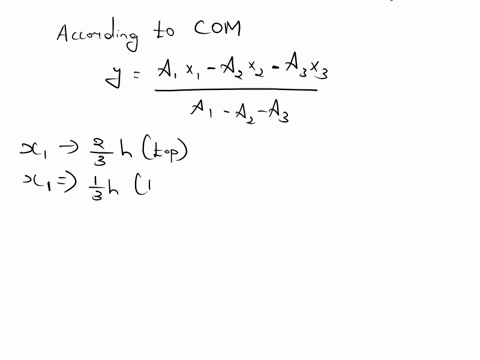 According to COM
y = A₁ x₁ - A₂ x₂ - A₃ x₃
A₁ - A₂ - A₃
x₁ → 2/3 h (top)
x₁ ⇒ 1/3 h (